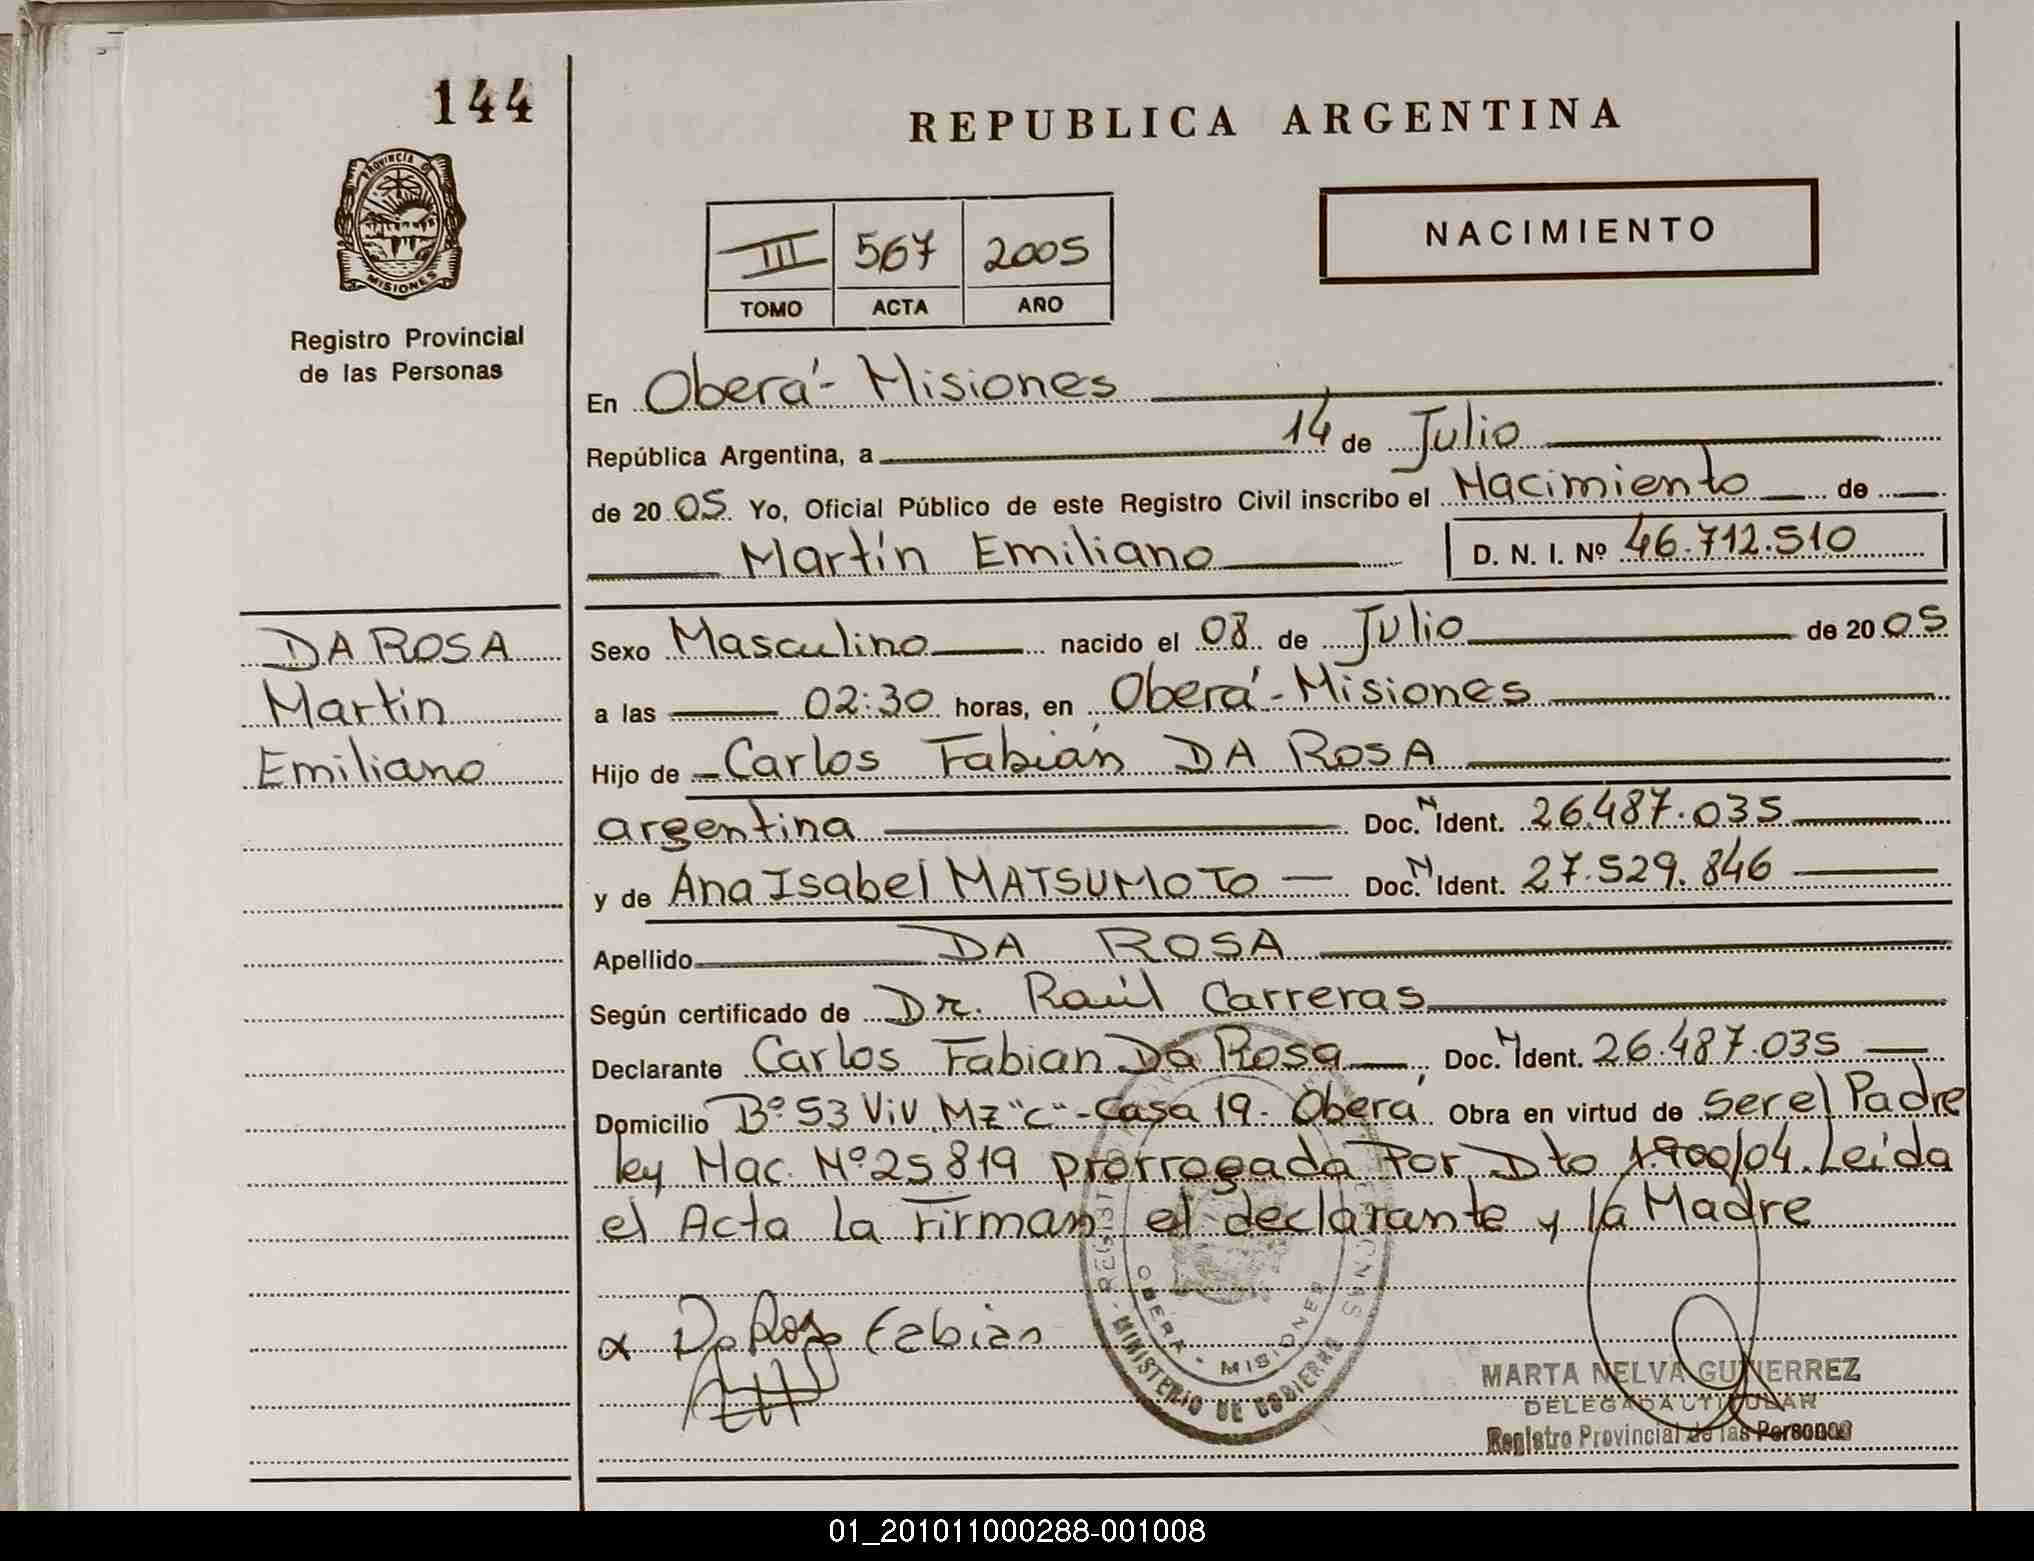 144
PROVINCIA DE
MISIONES
Registro Provincial
de las Personas
REPUBLICA ARGENTINA
NACIMIENTO
III 567 2005
TOMO ACTA AÑO
En Oberá - Misiones
República Argentina, a 14 de Julio
de 2005 Yo, Oficial Público de este Registro Civil inscribo el Nacimiento de
Martín Emiliano D. N. I. Nº 46.712.510
DA ROSA
Martín
Emiliano
Sexo Masculino nacido el 08 de Julio de 2005
a las 02:30 horas, en Oberá - Misiones
Hijo de Carlos Fabián DA ROSA
argentina Doc. N Ident. 26.487.035
y de Ana Isabel MATSUMOTO Doc. N Ident. 27.529.846
Apellido DA ROSA
Según certificado de Dr. Raúl Carreras
Declarante Carlos Fabian Da Rosa Doc. N Ident. 26.487.035
Domicilio Bº 53 Viv. Mz "C" - Casa 19 - Oberá Obra en virtud de ser el Padre
ley Nac. Nº 25819 prorrogada Por Dto 1.900/04. Leida
el Acta la Firman el declarante y la Madre
Da Rosa Fabian
OBERA - MISIONES
MINISTERIO DE GOBIERNO
MARTA NELVA GUTIERREZ
DELEGADA TITULAR
Registro Provincial de las Personas
01_201011000288-001008